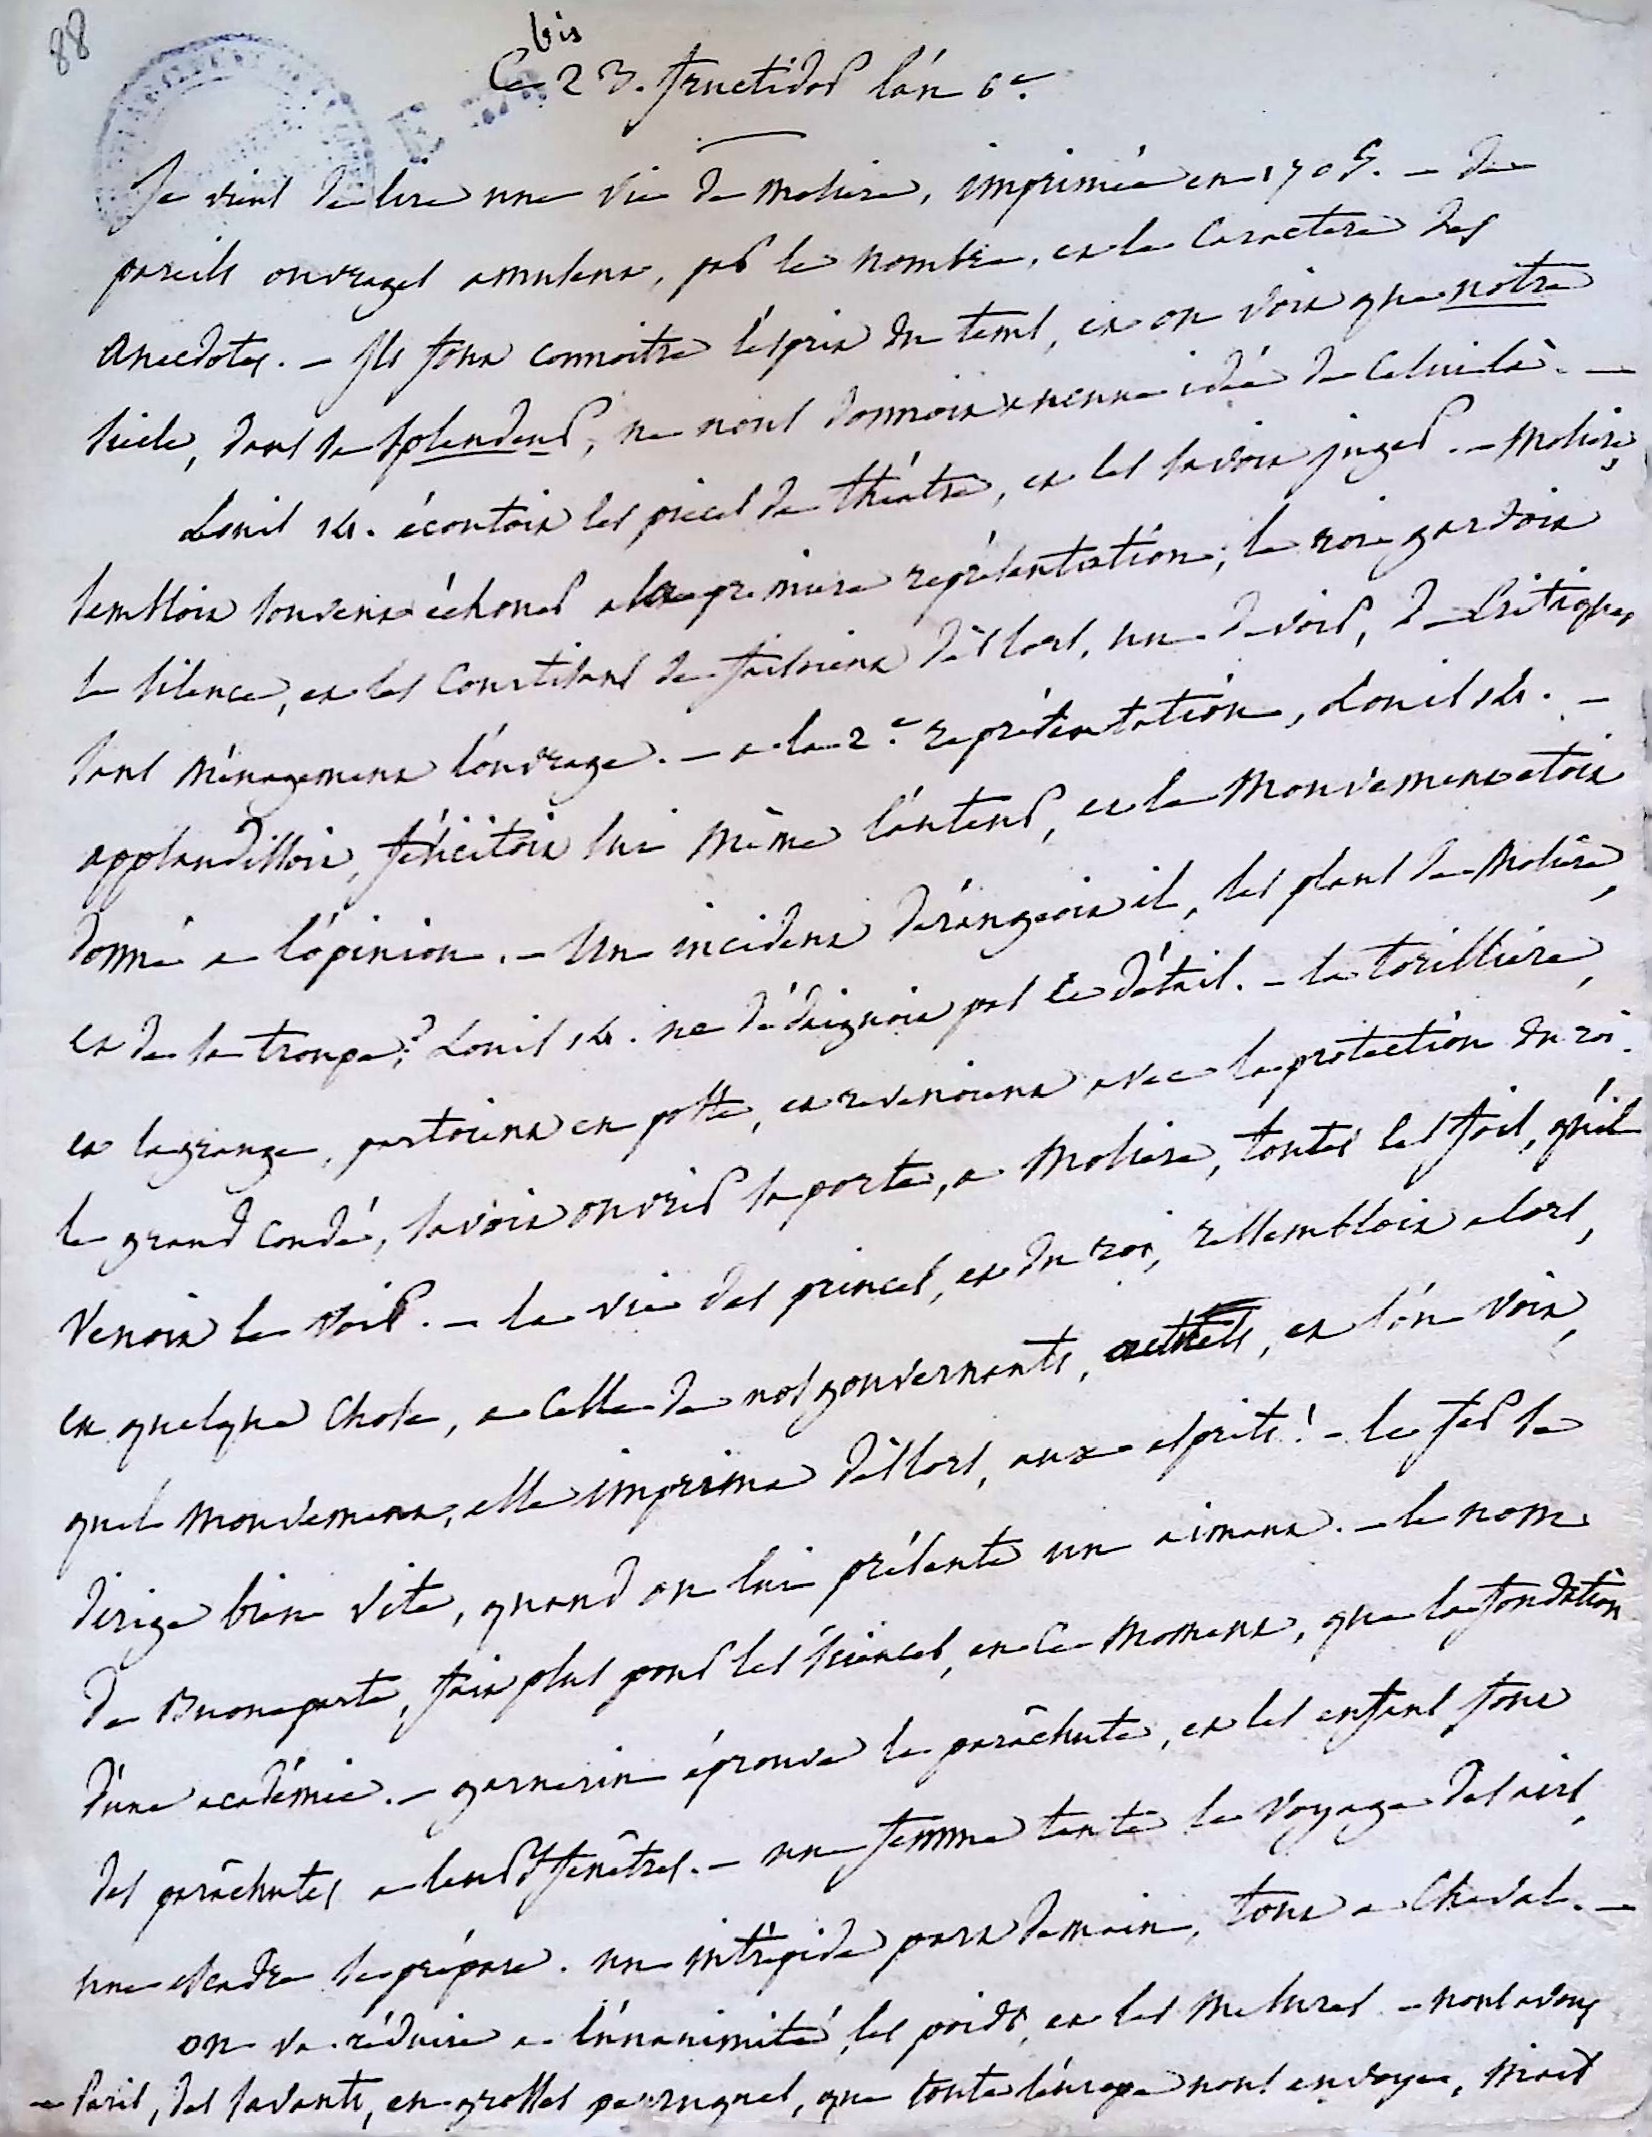 88
bis
Ce 23. fructidor l'an 6e.
Je viens de lire une vie de moliere, imprimée en 1705. - de
pareils ouvrages amusent, par le nombre, et le caractere des
anecdotes. - Ils font connoitre l'esprit du tems, et on voit que notre
siecle, dans sa splendeur, ne nous donnoit aucune idée de celui là. -
Louis 14. écoutoit les pieces de théatre, et les savoit juger. - Moliere,
sembloit souvent échouer a la premiere représentation; le roi gardoit
le silence, et les courtisans se faisoient dèslors, un devoir, de critiquer
sans ménagement l'ouvrage. - a la 2e. représentation, Louis 14. -
applaudissoit, félicitoit lui même l'auteur, et le mouvement etoit
donné a l'opinion. - Un incident dérangeoit il, les plans de Moliere,
et de sa troupe? Louis 14. ne dédaignoit pas ce détail. - la torilliere,
et lagrange, partoient en poste, et revenoient avec la protection du roi.
le grand Condé, savoit ouvrir sa porte, a Moliere, toutes les fois, qu'il
venoit le voir. - la vie des princes, et du roi, ressembloit alors,
en quelque chose, a celle de nos gouvernants, actuels, et l'on voit,
quel mouvement, elle imprime dèslors, aux esprits! - le fer se
dirige bien vite, quand on lui présente un aimant. - le nom
de Buonaparte, fait plus pour les sciences, en ce moment, que la fondation
d'une académie. - garnerin éprouve le parachute, et les enfans font
des parachutes a leurs fenêtres. - une femme tente le voyage des airs,
une escadre se prépare. un intrépide part demain, tout a cheval. -
on va réduire a l'unanimité, les poids, et les mesures. - nous avons
a Paris, des savants, en grosses perruques, que toute l'europe nous envoye, mais